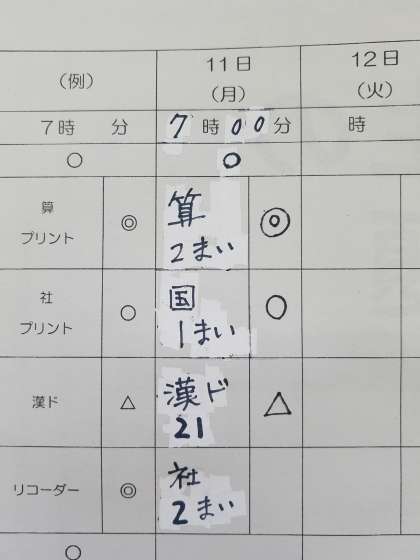 （例） 11日（月） 12日（火）
7時 分 7時00分 時
○ ○
算プリント ◎ 算2まい ◎
社プリント ○ 国1まい ○
漢ド △ 漢ド21 △
リコーダー ◎ 社2まい
○